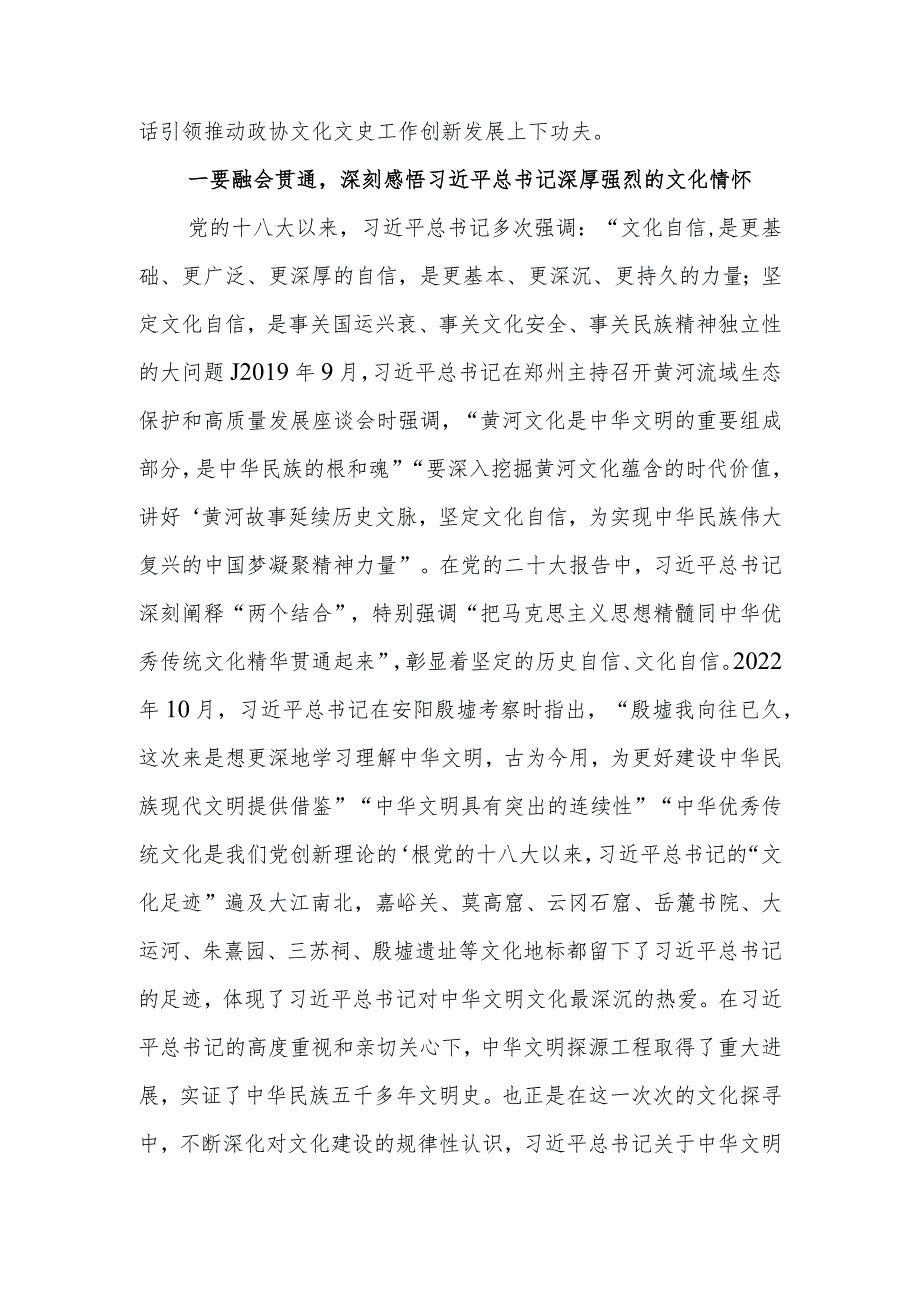 话引领推动政协文化文史工作创新发展上下功夫。
一要融会贯通，深刻感悟习近平总书记深厚强烈的文化情怀
党的十八大以来，习近平总书记多次强调：“文化自信,是更基
础、更广泛、更深厚的自信，是更基本、更深沉、更持久的力量；坚
定文化自信，是事关国运兴衰、事关文化安全、事关民族精神独立性
的大问题J2019年9月,习近平总书记在郑州主持召开黄河流域生态
保护和高质量发展座谈会时强调，“黄河文化是中华文明的重要组成
部分,是中华民族的根和魂”“要深入挖掘黄河文化蕴含的时代价值,
讲好‘黄河故事延续历史文脉，坚定文化自信，为实现中华民族伟大
复兴的中国梦凝聚精神力量”。在党的二十大报告中，习近平总书记
深刻阐释“两个结合”，特别强调“把马克思主义思想精髓同中华优
秀传统文化精华贯通起来”,彰显着坚定的历史自信、文化自信。2022
年10月，习近平总书记在安阳殷墟考察时指出，“殷墟我向往已久,
这次来是想更深地学习理解中华文明，古为今用，为更好建设中华民
族现代文明提供借鉴”“中华文明具有突出的连续性”“中华优秀传
统文化是我们党创新理论的‘根党的十八大以来,习近平总书记的“文
化足迹”遍及大江南北，嘉峪关、莫高窟、云冈石窟、岳麓书院、大
运河、朱熹园、三苏祠、殷墟遗址等文化地标都留下了习近平总书记
的足迹，体现了习近平总书记对中华文明文化最深沉的热爱。在习近
平总书记的高度重视和亲切关心下，中华文明探源工程取得了重大进
展，实证了中华民族五千多年文明史。也正是在这一次次的文化探寻
中，不断深化对文化建设的规律性认识，习近平总书记关于中华文明